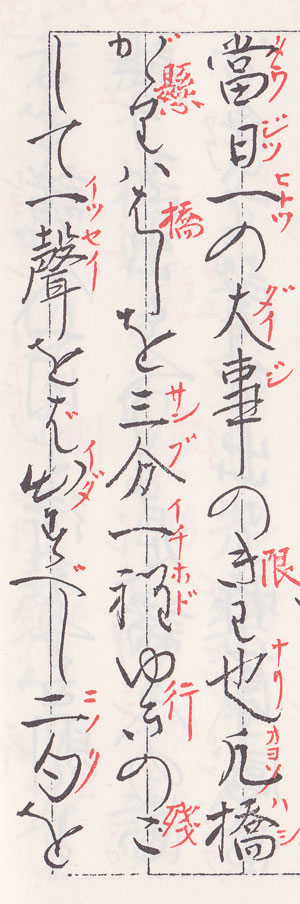 當日一の大事のきり也凡橋
タウ ジツ ヒトツ ダイ ジ 限 ナリ オヨソ ハシ
がゝりハはしを三分一程ゆきのこ
懸 橋 サン ブ イチ ホド 行 殘
して一聲をば出すべし二句を
イツセイ イダ ニノク